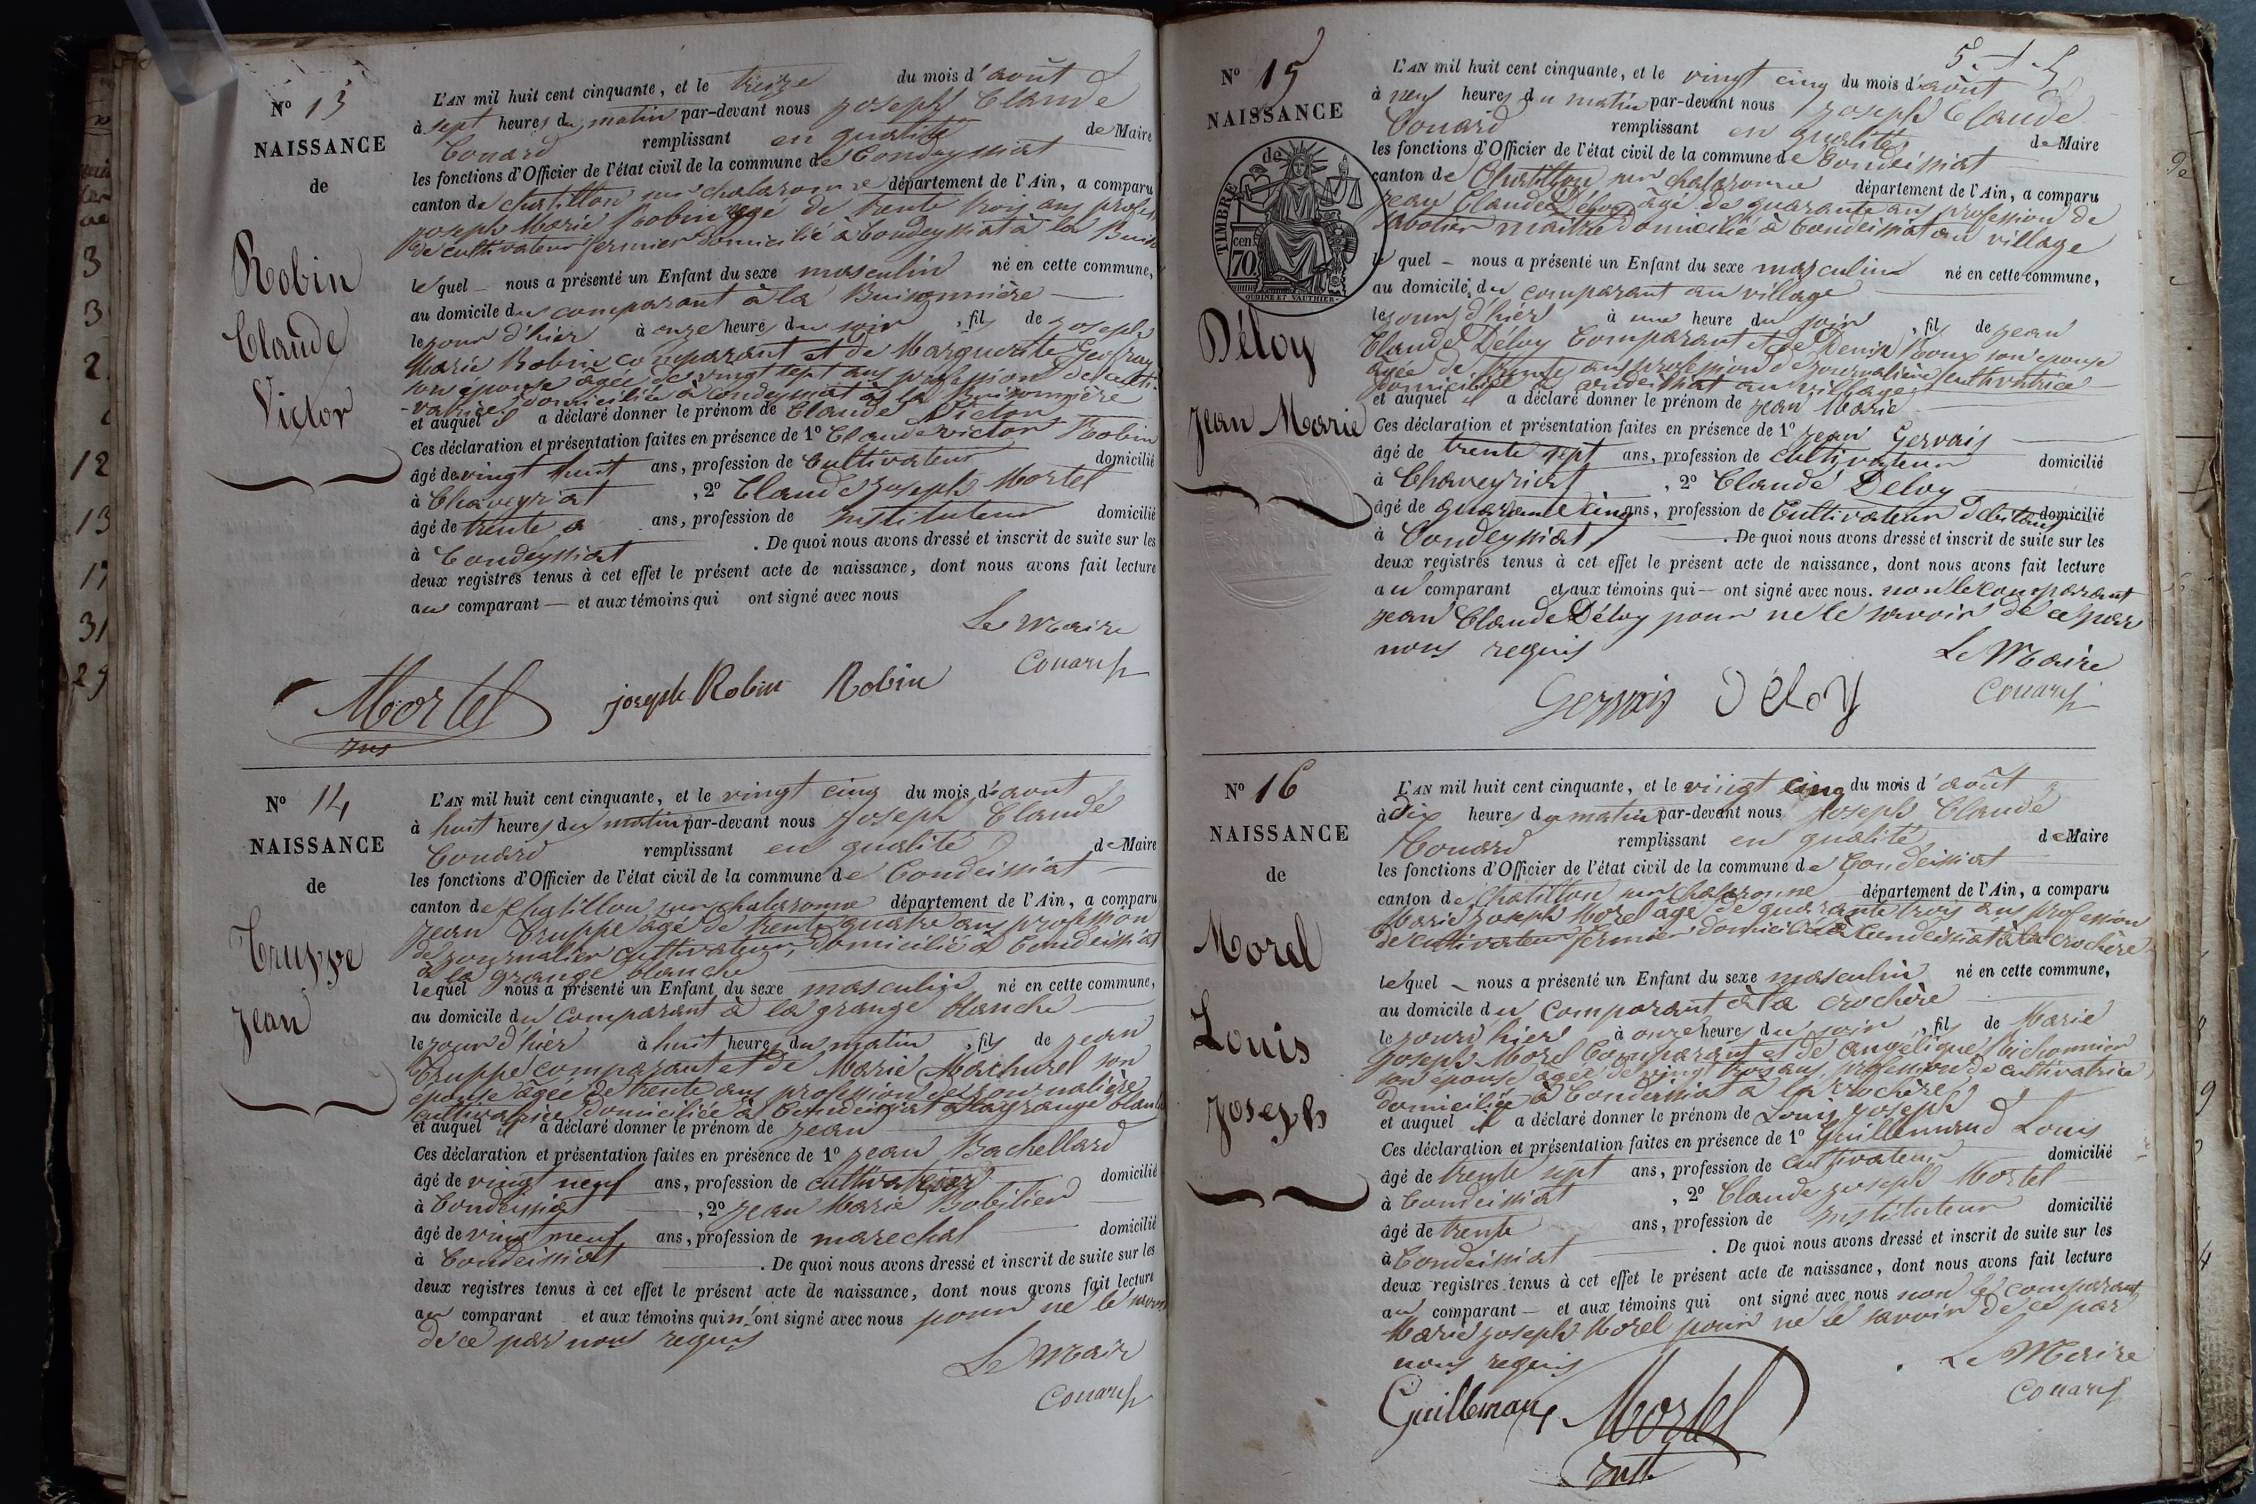 N° 13
NAISSANCE
de
Robin
Claude
Victor
L'AN mil huit cent cinquante, et le treize du mois d'août
à sept heures du matin par-devant nous joseph Claude
Couard remplissant en qualité de Maire
les fonctions d'Officier de l'état civil de la commune de Condeyssiat
canton de chatillon sur chalaronne département de l'Ain, a comparu
joseph Marie Robin agé de trente trois ans profes
de cultivateur fermier domicilié à Condeyssiat à la Buis
lequel nous a présenté un Enfant du sexe masculin né en cette commune,
au domicile du comparant à la Buisonnière
le jour d'hier à onze heures du soir, fils de joseph
Marie Robin comparant et de Marguerite Geofray
son épouse agée de vingt sept ans profession de culti-
-vatrice domiciliée à Condeyssiat à la Buisonnière
et auquel il a déclaré donner le prénom de Claude Victor
Ces déclaration et présentation faites en présence de 1° Claude victor Robin
âgé de vingt huit ans, profession de Cultivateur domicilié
à Chaveyriat, 2° Claude joseph Mortel
âgé de trente ans, profession de instituteur domicilié
à Condeyssiat. De quoi nous avons dressé et inscrit de suite sur les
deux registres tenus à cet effet le présent acte de naissance, dont nous avons fait lecture
au comparant et aux témoins qui ont signé avec nous
Le Maire
Couard
Mortel joseph Robin Robin
N° 14
NAISSANCE
de
Truppe
Jean
L'AN mil huit cent cinquante, et le vingt cinq du mois d'aout
à huit heures du matin par-devant nous joseph Claude
Couard remplissant en qualité de Maire
les fonctions d'Officier de l'état civil de la commune de Condeissiat
canton de Chatillon sur chalaronne département de l'Ain, a comparu
jean Truppe agé de trente quatre ans profession
de journalier cultivateur, domicilié à Condeissiat
à la grange blanche
lequel nous a présenté un Enfant du sexe masculin né en cette commune,
au domicile du comparant à la grange blanche
le jour d'hier à huit heures du matin, fils de jean
Truppe comparant et de Marie Machurel son
épouse âgée de trente ans profession de journalière
cultivatrice domiciliée à Condeissiat à la grange blanche
et auquel il a déclaré donner le prénom de jean
Ces déclaration et présentation faites en présence de 1° jean Bachellard
âgé de vingt neuf ans, profession de cultivateur domicilié
à Condeissiat, 2° jean Marie Bobillon
âgé de vingt neuf ans, profession de marechal domicilié
à Condeissiat. De quoi nous avons dressé et inscrit de suite sur les
deux registres tenus à cet effet le présent acte de naissance, dont nous avons fait lecture
au comparant et aux témoins qui n'ont signé avec nous pour ne le savoir
de ce par nous requis
Le Maire
Couard
N° 15
NAISSANCE
TIMBRE de
cen 70
OUDINÉ ET VAUTHIER
Déloy
Jean Marie
L'AN mil huit cent cinquante, et le vingt cinq du mois d'août
à neuf heures du matin par-devant nous joseph Claude
Couard remplissant en qualité de Maire
les fonctions d'Officier de l'état civil de la commune de Condeissiat
canton de Chatillon sur chalaronne département de l'Ain, a comparu
jean Claude Deloy âgé de quarante ans profession de
sabotier maître domicilié à Condeissiat au village
lequel nous a présenté un Enfant du sexe masculin né en cette commune,
au domicile du comparant au village
le jour d'hier à une heure du soir, fils de jean
Claude Déloy Comparant et de Denise Roux son épouse
agée de trente ans profession de journalière cultivatrice
domiciliée à Condeissiat au village
et auquel il a déclaré donner le prénom de jean Marie
Ces déclaration et présentation faites en présence de 1° jean Gervais
âgé de trente sept ans, profession de cultivateur domicilié
à Chaveyriat, 2° Claude Deloy
âgé de quarante cinq ans, profession de Cultivateur debitant domicilié
à Condeyssiat. De quoi nous avons dressé et inscrit de suite sur les
deux registres tenus à cet effet le présent acte de naissance, dont nous avons fait lecture
au comparant et aux témoins qui ont signé avec nous. non le comparant
jean Claude Déloy pour ne le savoir de ce par
nous requis
Le Maire
Couard
Gervais Déloy
N° 16
NAISSANCE
de
Morel
Louis
Joseph
L'AN mil huit cent cinquante, et le vingt cinq du mois d'août
à Dix heures du matin par-devant nous joseph Claude
Couard remplissant en qualité de Maire
les fonctions d'Officier de l'état civil de la commune de Condeissiat
canton de Chatillon sur chalaronne département de l'Ain, a comparu
Marie joseph Morel âgé de quarante trois ans profession
de cultivateur fermier domicilié à Condeissiat à la crochère
lequel nous a présenté un Enfant du sexe masculin né en cette commune,
au domicile du Comparant à la crochère
le jour d'hier à onze heures du soir, fils de Marie
Joseph Morel Comparant et de Angélique Pichonnier
son epouse agée de vingt trois ans profession de cultivatrice
domiciliée à Condeissiat à la crochère
et auquel il a déclaré donner le prénom de Louis joseph
Ces déclaration et présentation faites en présence de 1° Guillemaud Louis
âgé de trente sept ans, profession de cultivateur domicilié
à Condeissiat, 2° Claude joseph Mortel
âgé de trente ans, profession de instituteur domicilié
à Condeissiat. De quoi nous avons dressé et inscrit de suite sur les
deux registres tenus à cet effet le présent acte de naissance, dont nous avons fait lecture
au comparant et aux témoins qui ont signé avec nous non le comparant
Marie joseph Morel pour ne le savoir de ce par
nous requis
Le Maire
Couard
Guillemaud Mortel